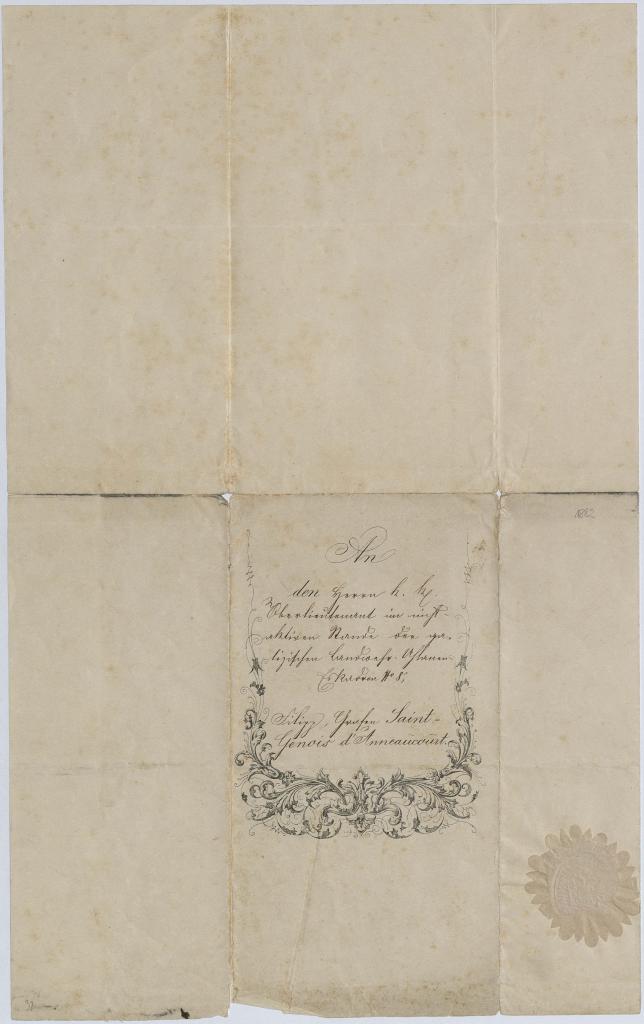 1882
An
den Herrn k. k.
Oberlieutenant im nicht-
aktiven Stande der ga-
lizischen Landwehr-Uhlanen-
Eskadron No 8,
Filipp, Grafen Saint-
Genois d'Anneaucourt.